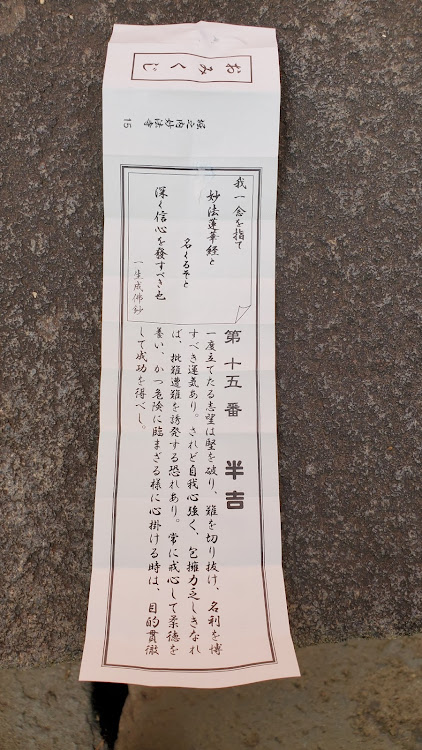 おみくじ
堀之内妙法寺 15
我一念を指て
妙法蓮華経と
名くるぞと
深く信心を發すべき也
一生成佛鈔
第十五番 半吉
一度立てたる志望は堅を破り、難を切り抜け、名利を博
すべき運気あり。されど自我心強く、包擁力乏しきなれ
ば、批難遭難を誘発する恐れあり。常に戒心して柔徳を
養い、かつ危険に臨まざる様に心掛ける時は、目的貫徹
して成功を得べし。